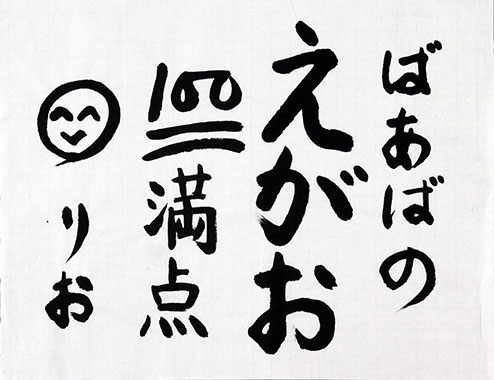 ばあばの
えがお
100満点
りお